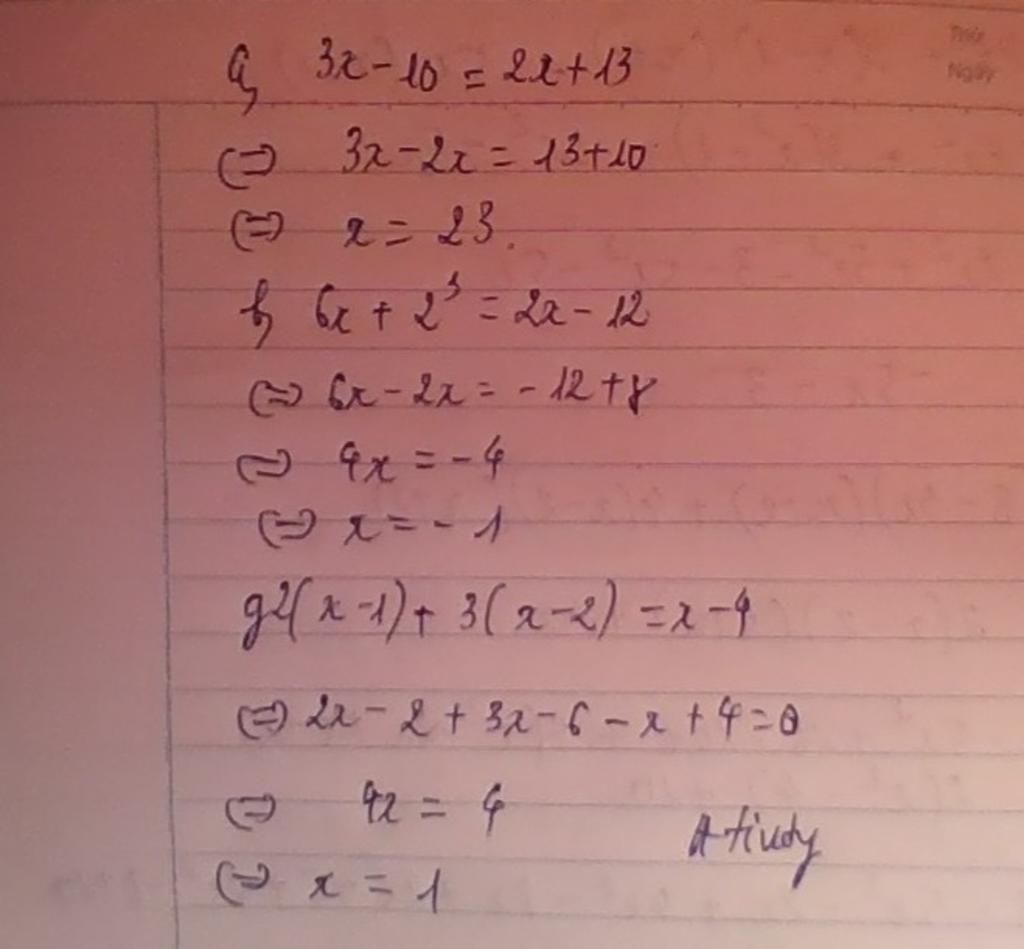 a, 3x - 10 = 2x + 13
⇔ 3x - 2x = 13 + 10
⇔ x = 23.
b, 6x + 2³ = 2x - 12
⇔ 6x - 2x = -12 + 8
⇔ 4x = -4
⇔ x = -1
g 2(x - 1) + 3(x - 2) = x - 4
⇔ 2x - 2 + 3x - 6 - x + 4 = 0
⇔ 4x = 4
⇔ x = 1
Thứ
Ngày